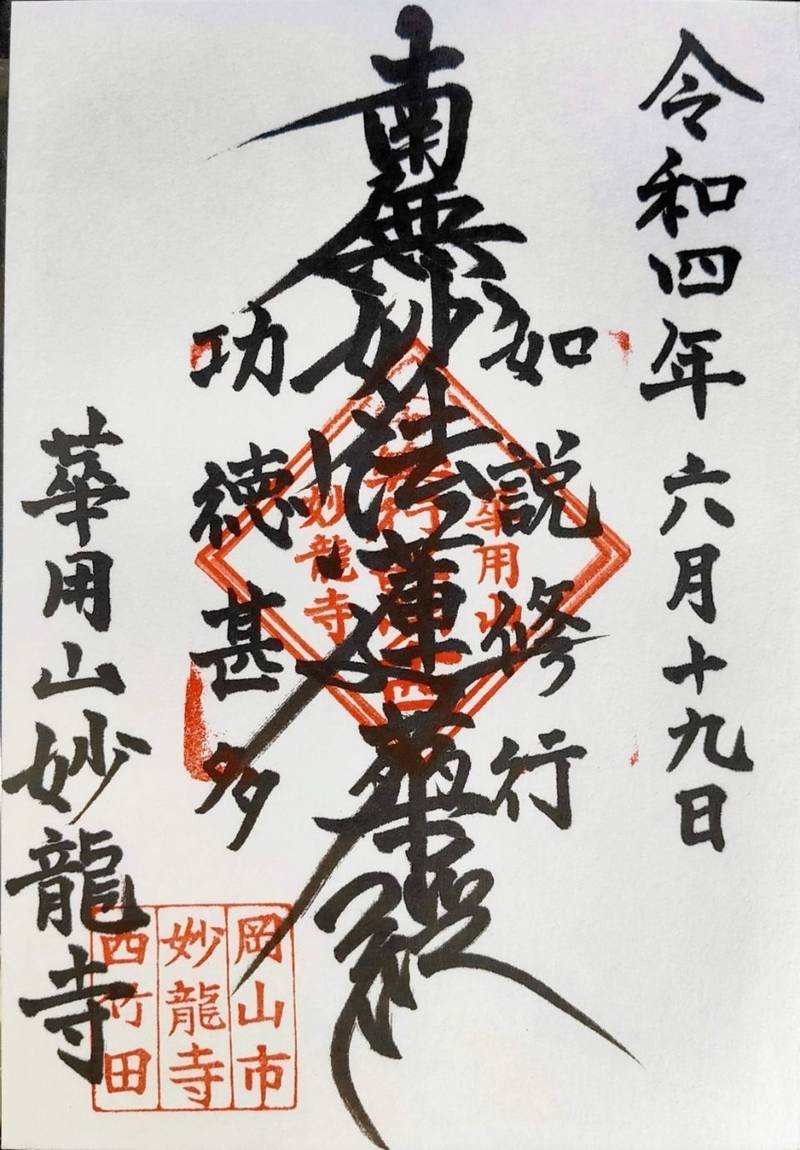 令和四年六月十九日
如説修行
南無妙法蓮華経
功徳甚多
華用山妙龍寺
華用山
妙龍寺
岡山市
妙龍寺
西竹田